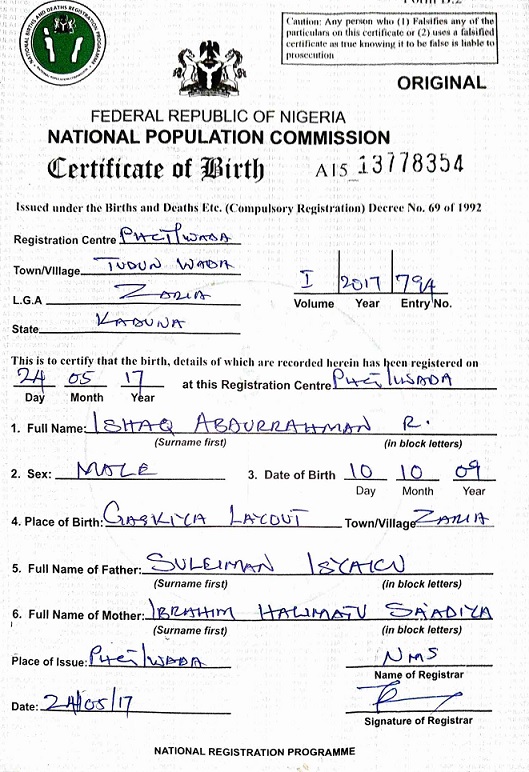 Form B.2
NATIONAL BIRTHS AND DEATHS REGISTRATION PROGRAMME
NATIONAL POPULATION COMMISSION
Caution: Any person who (1) Falsifies any of the
particulars on this certificate or (2) uses a falsified
certificate as true knowing it to be false is liable to
prosecution
ORIGINAL
FEDERAL REPUBLIC OF NIGERIA
NATIONAL POPULATION COMMISSION
Certificate of Birth A15 13778354
Issued under the Births and Deaths Etc. (Compulsory Registration) Decree No. 69 of 1992
Registration Centre
Town/Village TUDUN WADA
L.G.A ZARIA
State KADUNA
I 2017 794
Volume Year Entry No.
This is to certify that the birth, details of which are recorded herein has been registered on
24 05 17 at this Registration Centre
Day Month Year
1. Full Name: ISHAQ ABDURRAHMAN R.
(Surname first) (in block letters)
2. Sex: MALE 3. Date of Birth 10 10 09
Day Month Year
4. Place of Birth: GASKIYA LAYOUT Town/Village ZARIA
5. Full Name of Father: SULEIMAN
(Surname first) (in block letters)
6. Full Name of Mother: IBRAHIM HALIMATU SA'ADIYA
(Surname first) (in block letters)
Place of Issue:
NMS
Name of Registrar
Date: 24/05/17
Signature of Registrar
NATIONAL REGISTRATION PROGRAMME